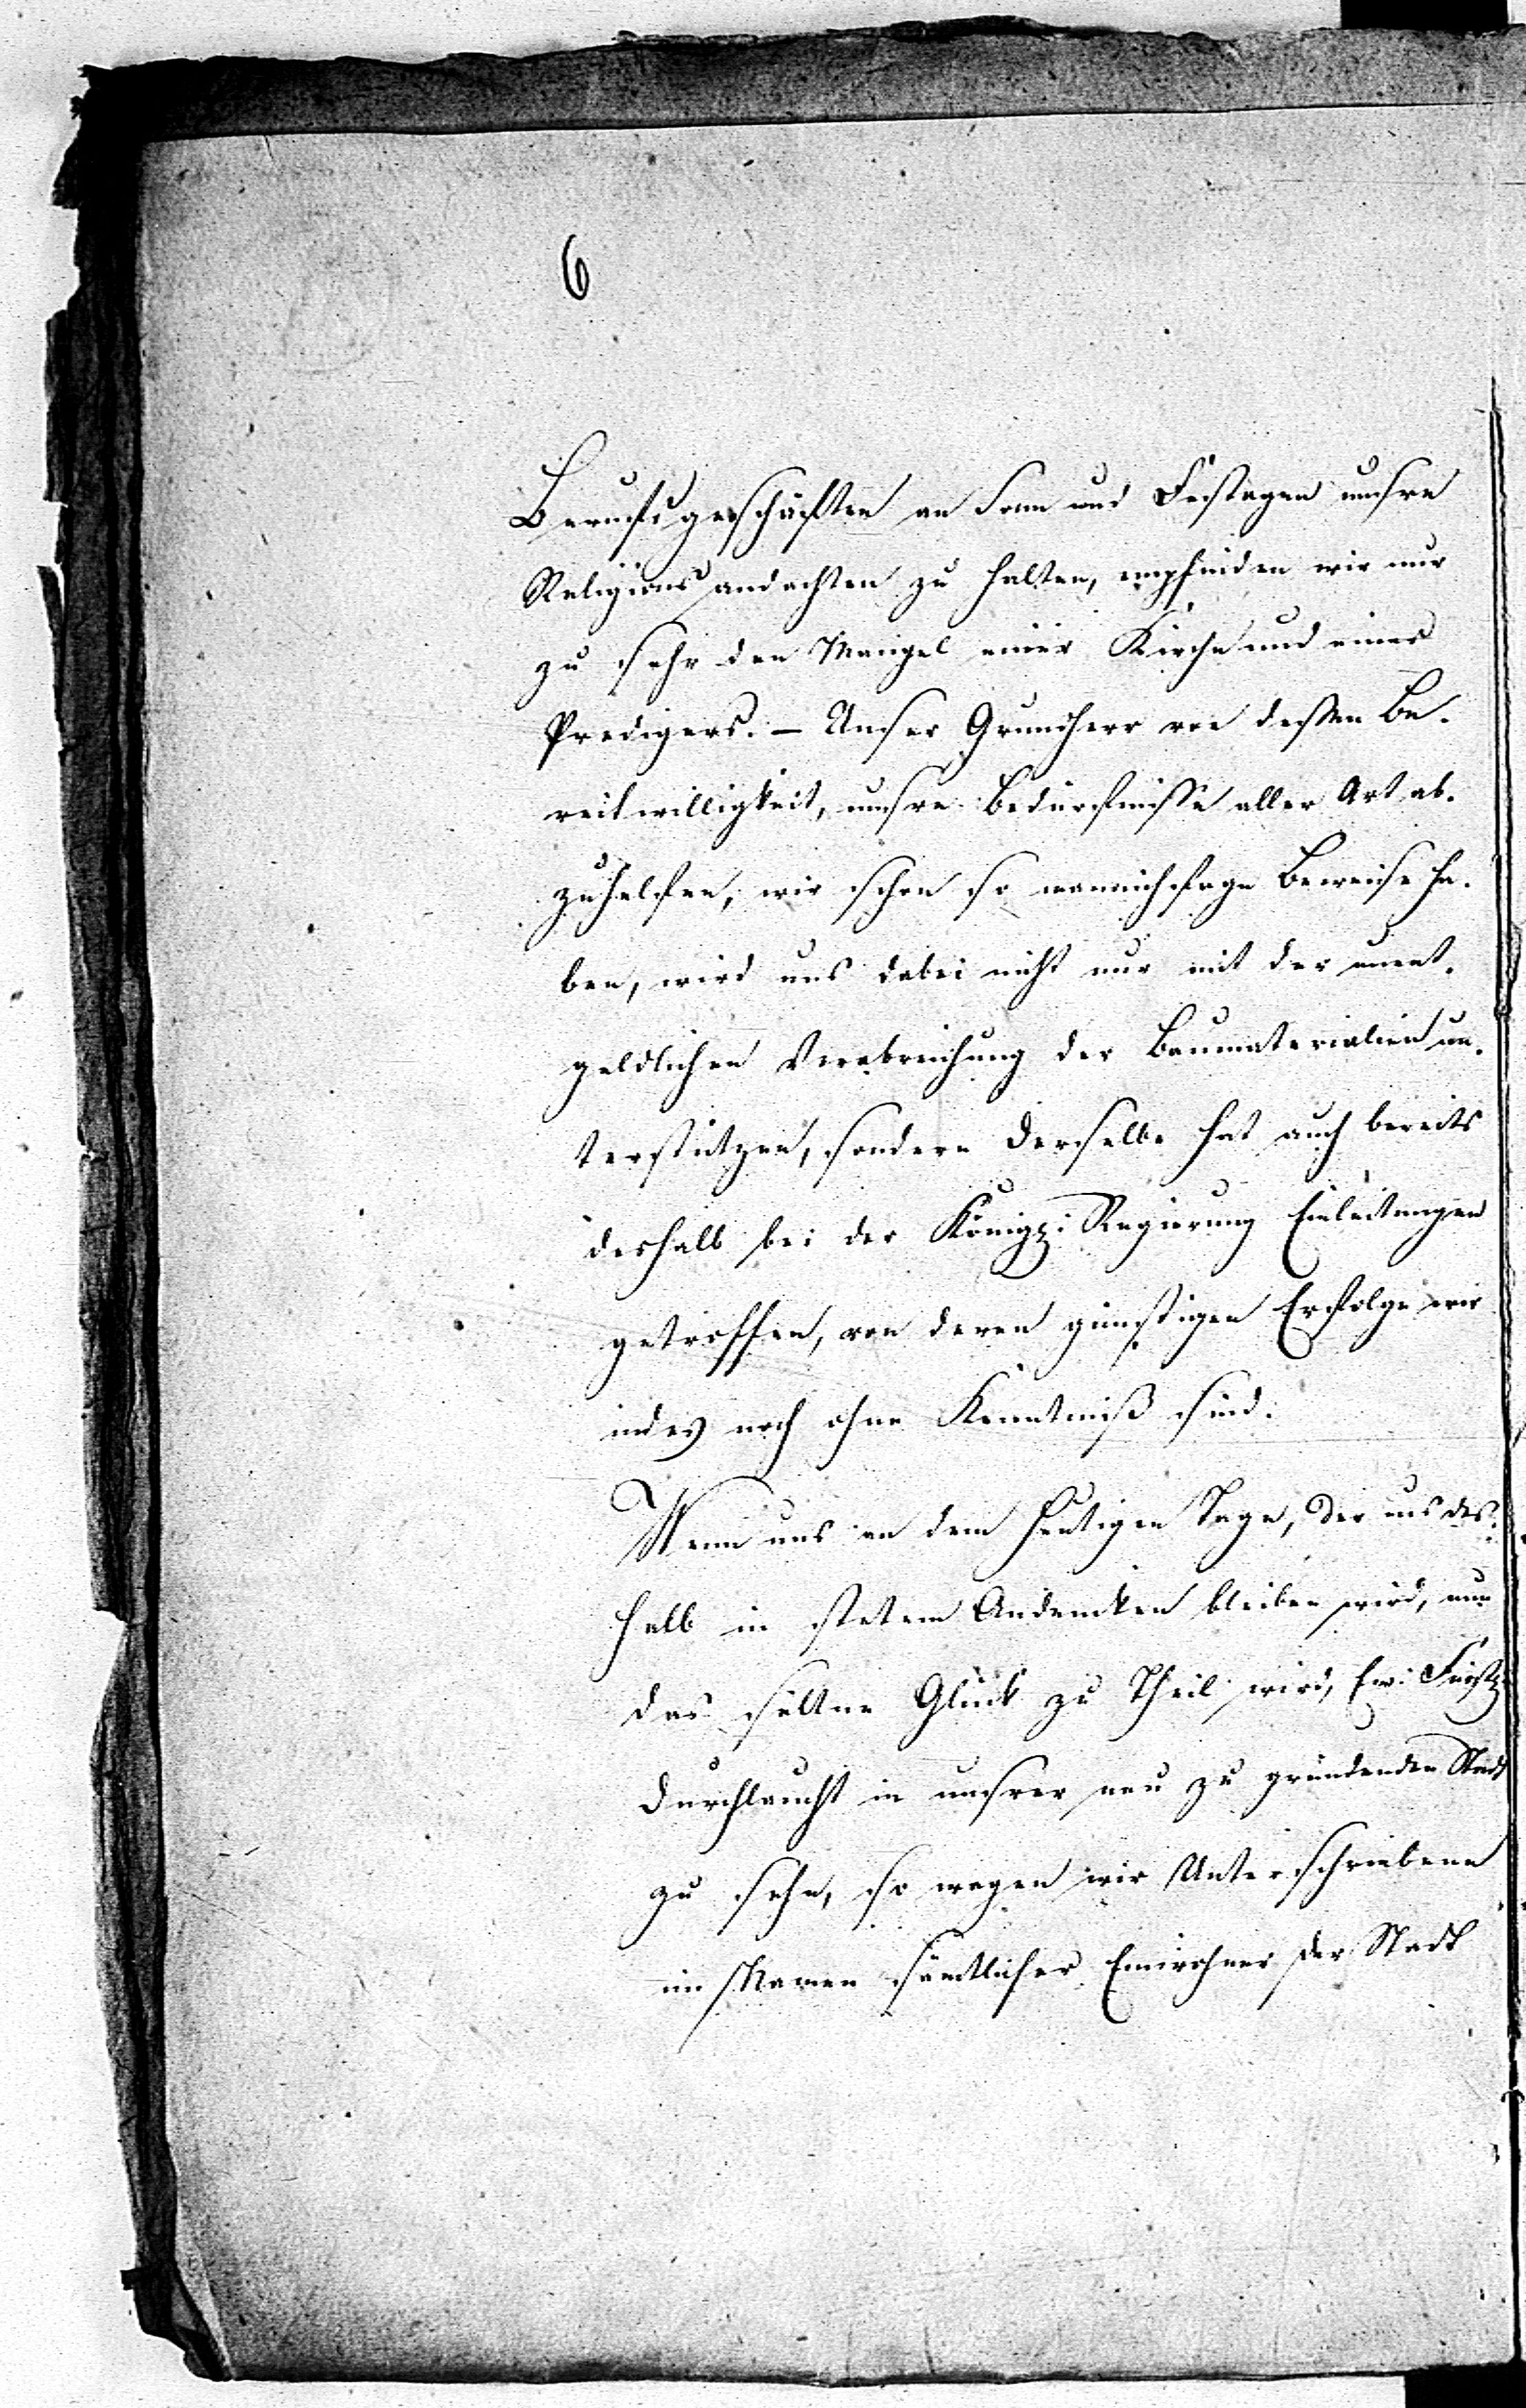 6
Berufsgeschäften an Sonn und Festagen unsre
Religions andachten zu halten, empfinden wir nur
zu sehr den Mangel einer Kirche und eines
Predigers. – Unser Grundherr von dessen Be-
reitwilligkeit, unsre Bedürfnisse aller Art ab-
zuhelfen, wir schon so mannichfage Beweise ha-
ben, wird uns dabei nicht nur mit der unent-
geldlichen Verabreichung der Baumaterialien un-
terstützen, sondern derselbe hat auch bereits
deshalb bei der Königl: Regierung Einleitungen
getroffen, von deren günstigen Erfolge wir
indeß noch ohne Kenntniß sind.
Wenn uns an dem heutigen Tage, der uns des-
halb in stetem Andenken bleiben wird, nun
das seltne Glück zu Theil wird, Ew: Fürstl:
Durchlaucht in unsrer neu zu gründenden Stadt
zu sehn, so wagen wir Unterschriebene
im Namen sämtlicher Einwohner der Stadt